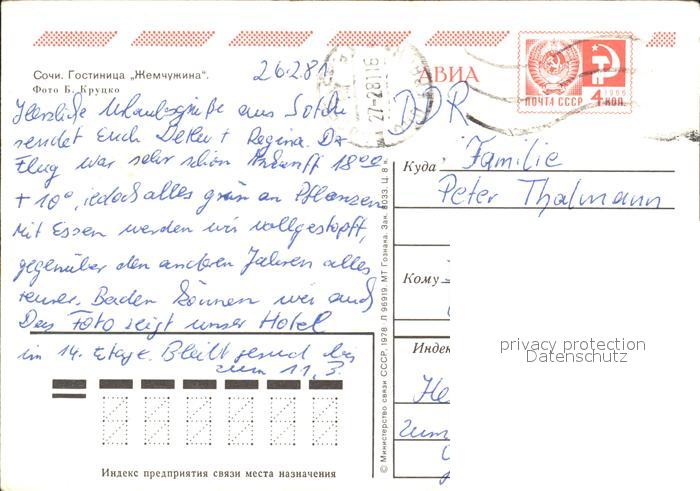 Сочи. Гостиница „Жемчужина".
Фото Б. Круцко
26.2.81
АВИА
ПОЧТА СССР
4 КОП.
1966
DDR
Herzliche Urlaubsgrüße aus Sotchi
sendet Euch Detlev + Regina. Der
Flug war sehr schön Ankunft 18⁰⁰
+ 10°, jedoch alles grün an Pflanzen
Mit Essen werden wir vollgestopft,
gegenüber den anderen Jahren alles
teurer. Baden können wir auch
Das Foto zeigt unser Hotel
im 14. Etage. Bleibt gesund bis
zum 11.3.
Куда
Familie
Peter Thalmann
Кому
Индек
privacy protection
Datenschutz
© Министерство связи СССР, 1978. Л 96919. МТ Гознака. Зак. 8033. Ц. 8 к.
Индекс предприятия связи места назначения